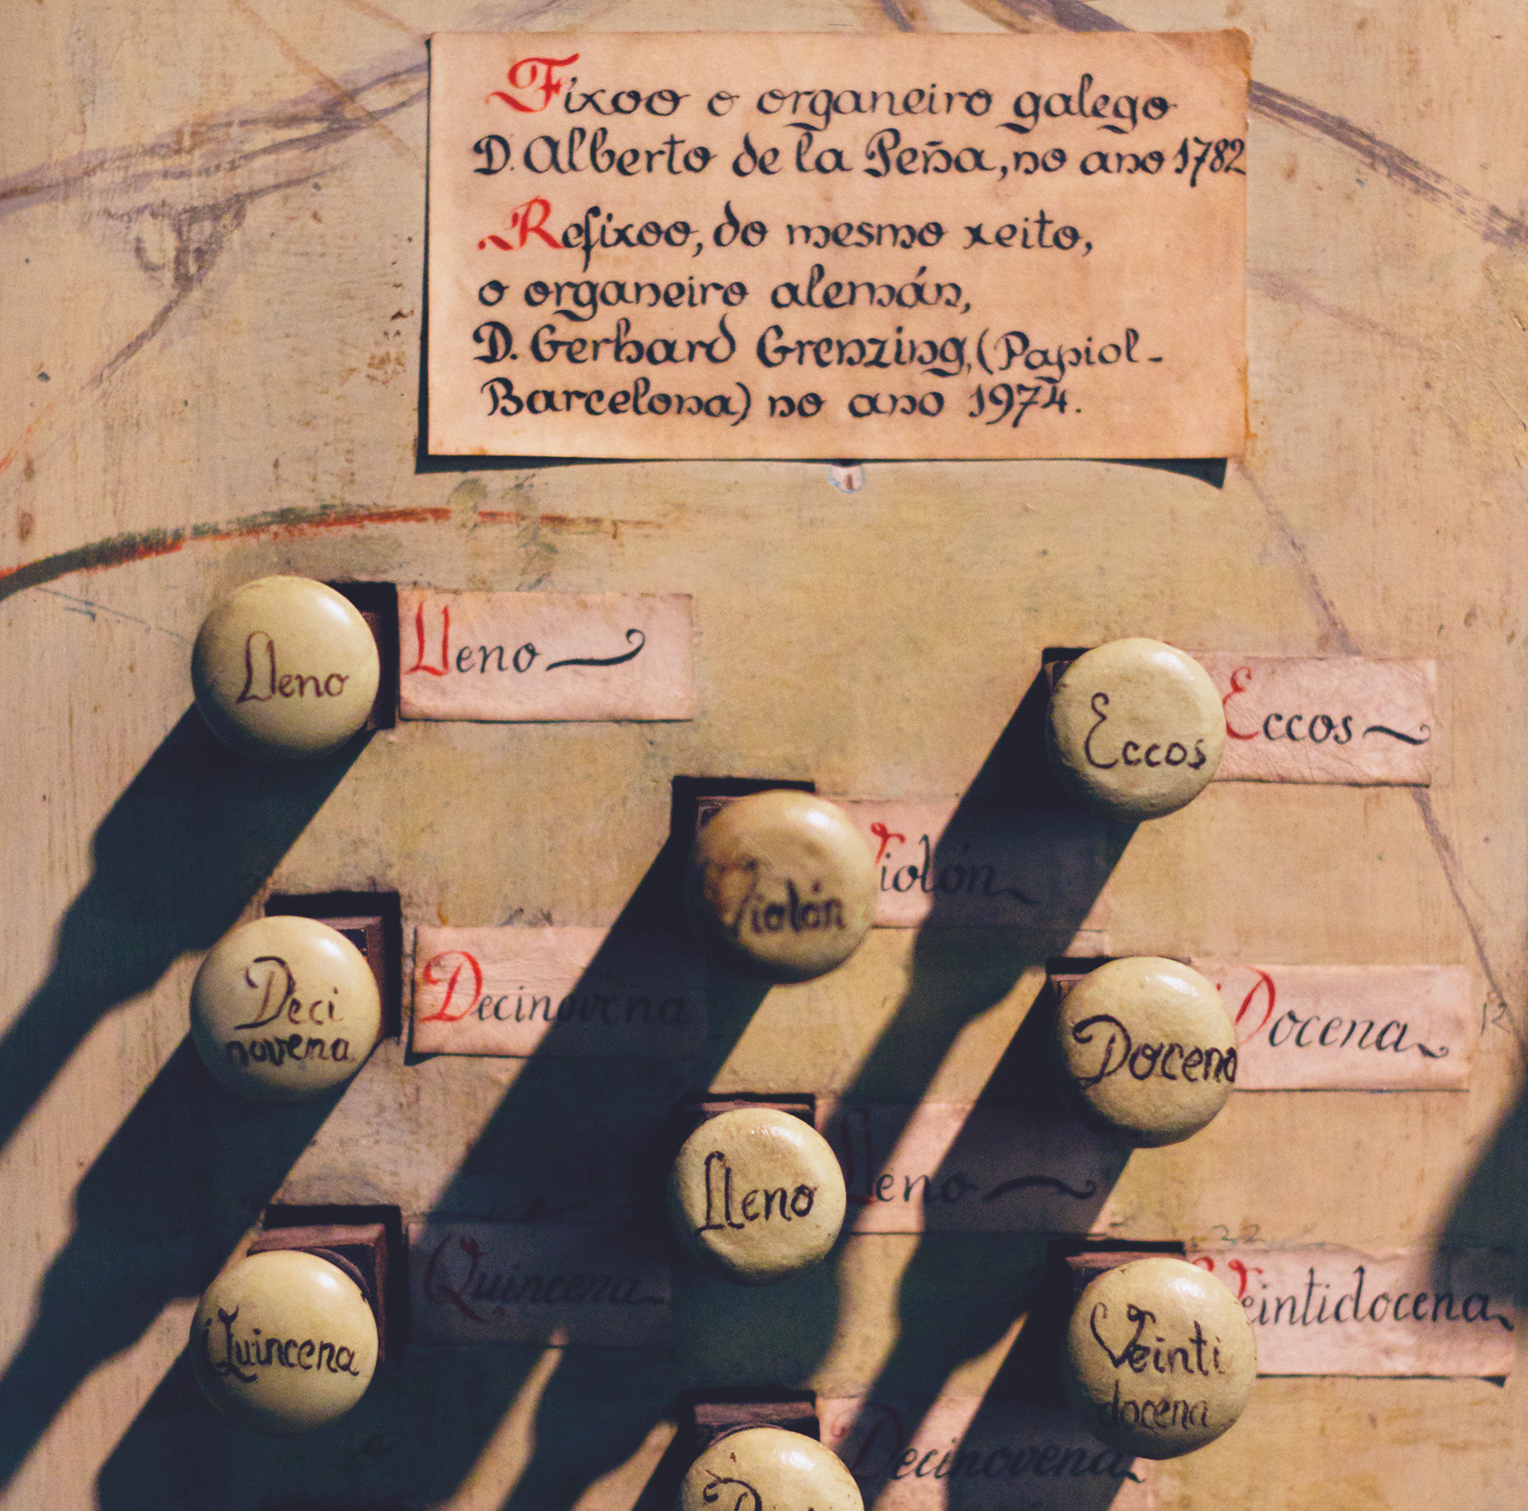 Fixoo o organeiro galego
D. Alberto de la Peña, no ano 1782
Refixoo, do mesmo xeito,
o organeiro alemán,
D. Gerhard Grenzing, (Papiol-
Barcelona) no ano 1974.
Lleno
Lleno
Eccos
Eccos
Violón
Violón
Deci
novena
Decinovena
Docena
Docena
12
Lleno
Lleno
Quincena
Quincena
22
Veinti
docena
Veintidocena
Decinovena